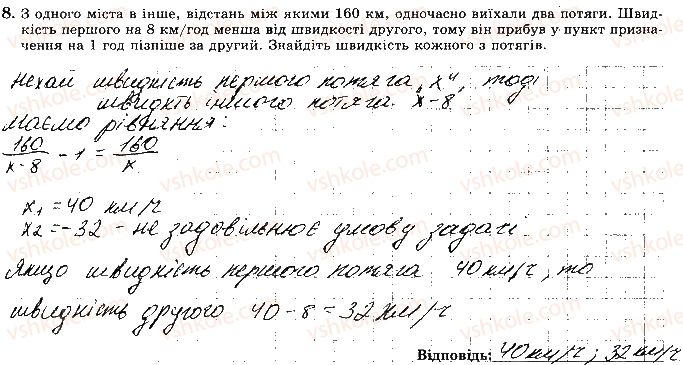 8. З одного міста в інше, відстань між якими 160 км, одночасно виїхали два потяги. Швид-
кість першого на 8 км/год менша від швидкості другого, тому він прибув у пункт призна-
чення на 1 год пізніше за другий. Знайдіть швидкість кожного з потягів.
Нехай швидкість першого потяга „x", тоді
швидкість іншого потяга x-8
Маємо рівняння:
160/(x-8) - 1 = 160/x
x1 = 40 км/г
x2 = -32 - не задовільнює умову задачі
Якщо швидкість першого потяга 40 км/г, то
швидкість другого 40 - 8 = 32 км/г
Відповідь: 40 км/г; 32 км/г
vshkole.com